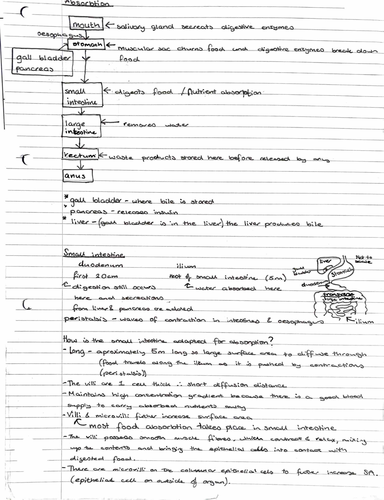 Absorbtion
mouth ← salivary gland secreats digestive enzymes
oesophagus
stomach ← muscular sac churns food and digestive enzymes break down food
gall bladder
pancreas
small intestine ← digests food / Nutrient absorption
large intestine ← removes water
rectum ← waste products stored here before released by anus
anus
* gall bladder - where bile is stored
* pancreas - releases insulin
* liver - (gall bladder is in the liver) the liver produces bile
Small intestine
duodenum ilium
first 20cm rest of small intestine (5m)
digestion still occurs water absorbed here
here and secreations
from liver & pancreas are
peristalsis - waves of contraction in intestines & oesophagus
liver
stomach
duodenum
ilium
How is the small intestine adapted for absorption?
- Long - aproximately 5m long so large surface area to diffuse through
(food travels along the ileum as it is pushed by contractions
(peristalsis))
- The villi are 1 cell thick ∴ short diffusion distance
- Maintains high concentration gradient because there is a good blood
supply to carry absorbed nutrients away
- Villi & microvilli futher increase surface area
↳ most food absorption takes place in small intestine
- The villi possess smooth muscle fibres, which contract & relax, mixing
up the contents and bringing the epithelial cells into contact with
digested food.
- There are microvilli on the columnar epithelial cells to futher increase SA.
(epithelial cell on outside of organ).